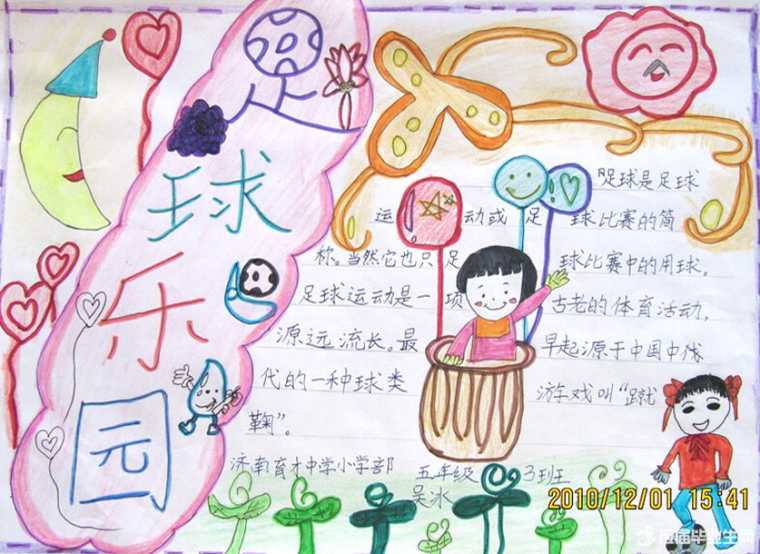 足球乐园
足球是足球
运动或足球比赛的简
称。当然它也只足球比赛中的用球。
足球运动是一项古老的体育活动，
源远流长。最早起源于中国中伐
代的一种球类游戏叫“蹴
鞠”。
济南育才中学小学部 五年级 3班
吴冰
2010/12/01 15:41
应届毕业生网